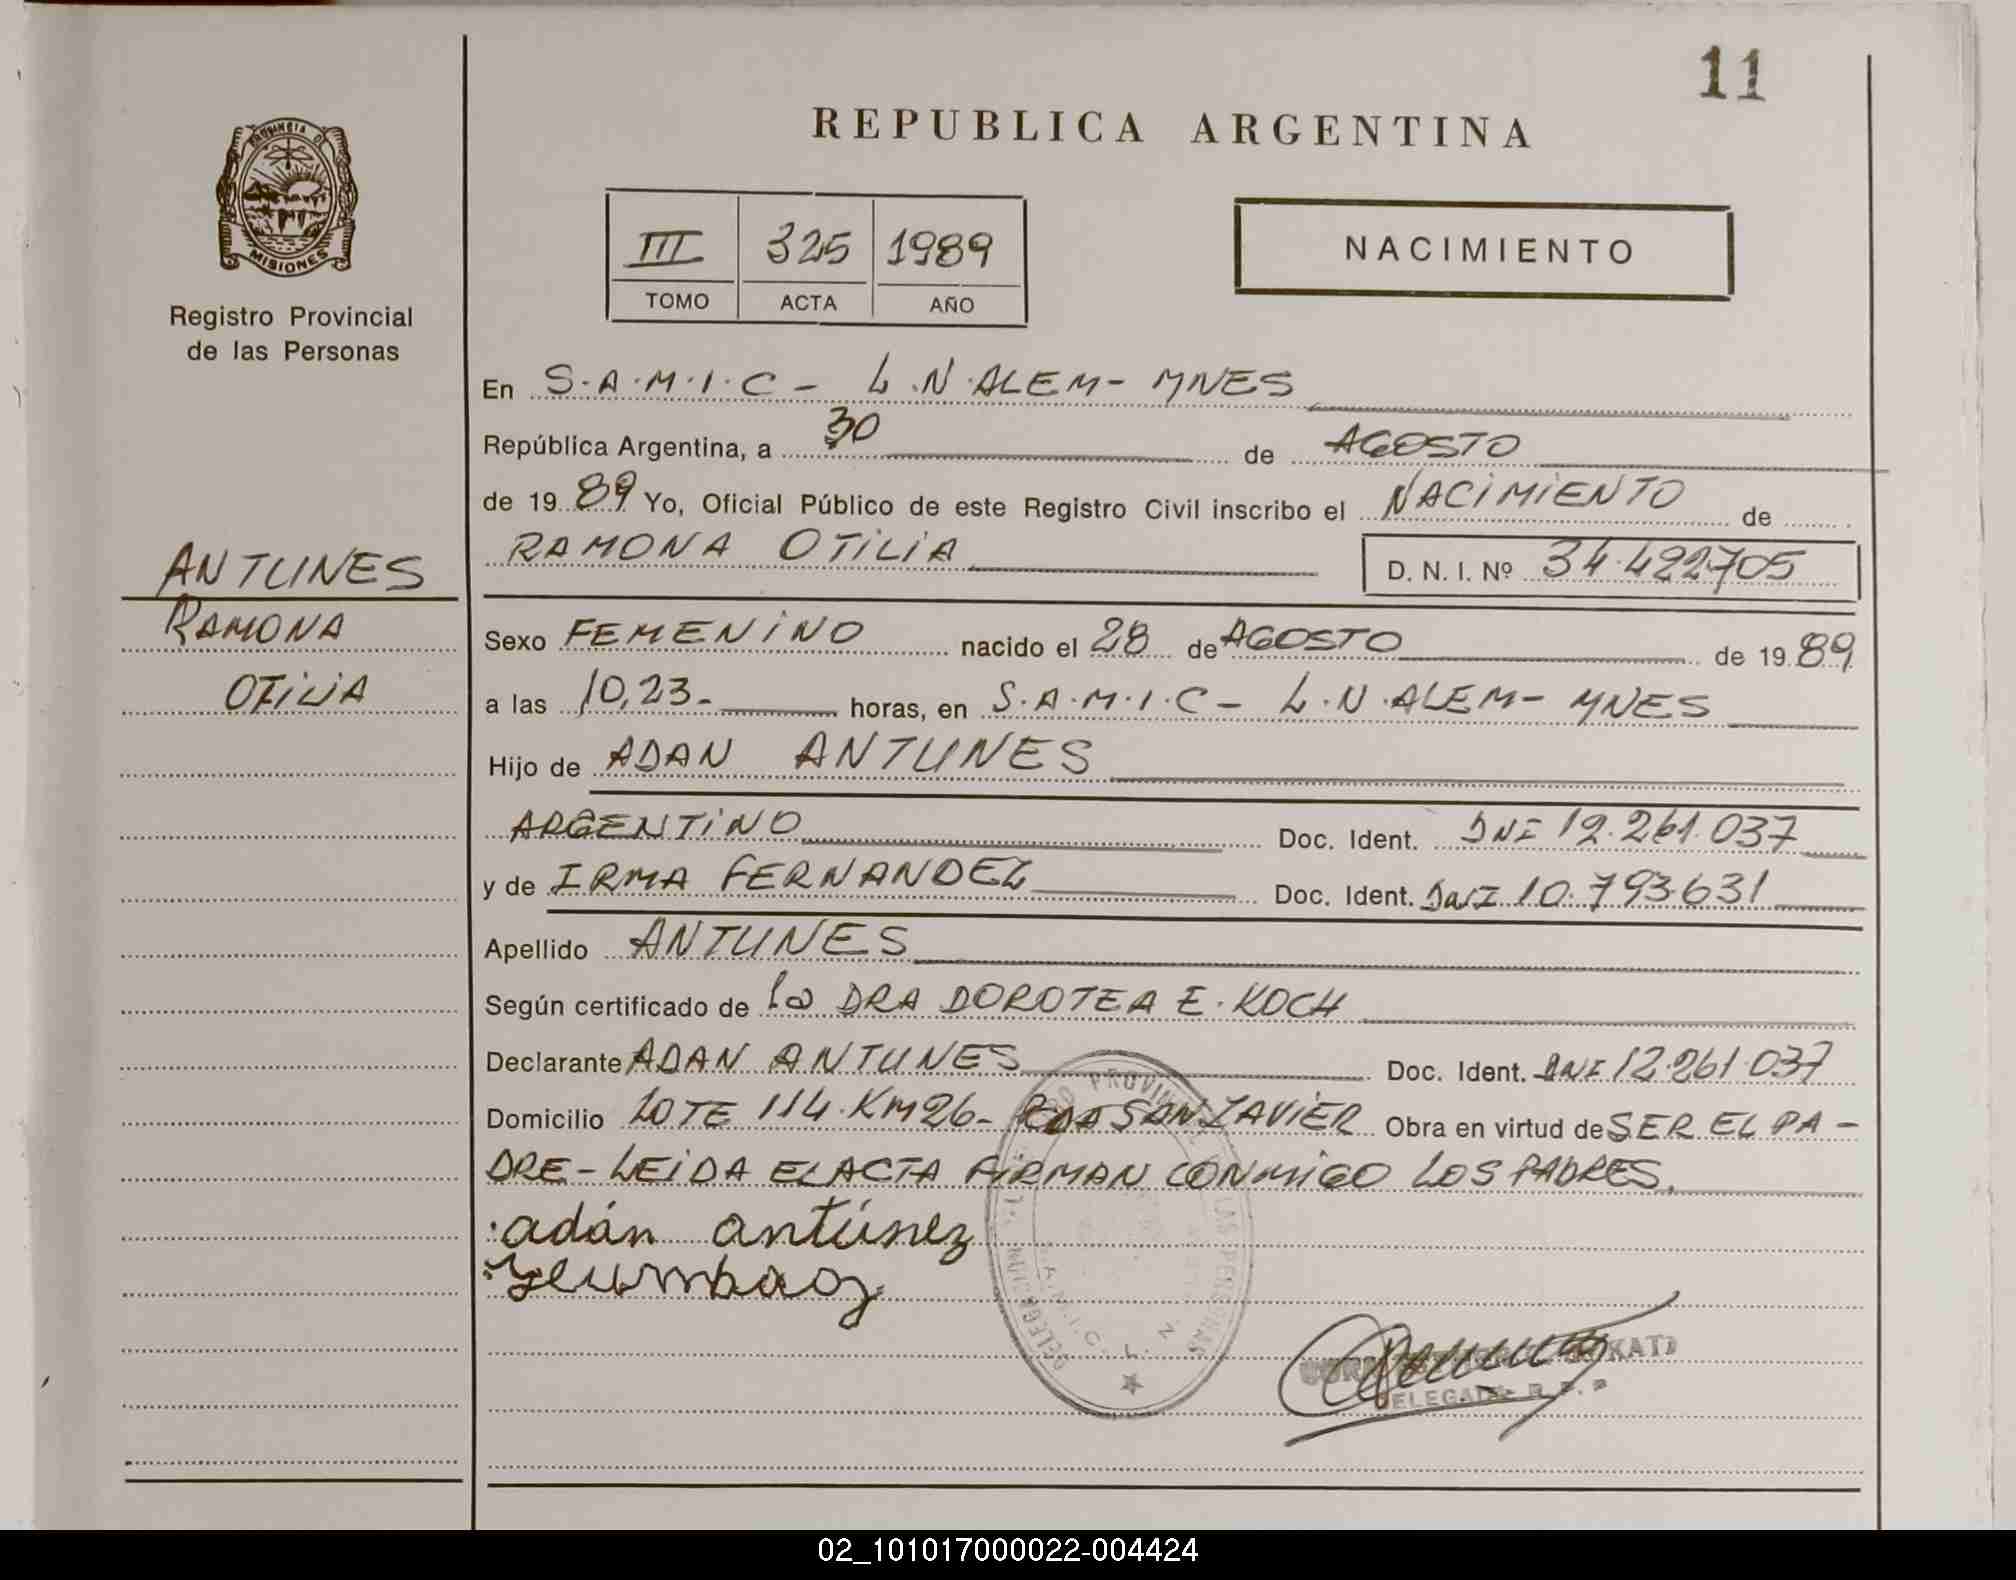 11
REPUBLICA ARGENTINA
PROVINCIA D
MISIONES
Registro Provincial
de las Personas
III 325 1989
TOMO ACTA AÑO
NACIMIENTO
En S.A.M.I.C - L.N.ALEM - MNES
República Argentina, a 30 de AGOSTO
de 1989 Yo, Oficial Público de este Registro Civil inscribo el NACIMIENTO de
RAMONA OTILIA D. N. I. Nº 34.422705
ANTUNES
RAMONA
OTILIA
Sexo FEMENINO nacido el 28 de AGOSTO de 1989
a las 10,23- horas, en S.A.M.I.C - L.N.ALEM - MNES
Hijo de ADAN ANTUNES
ARGENTINO Doc. Ident. DNI 12.261.037
y de IRMA FERNANDEZ Doc. Ident. DNI 10.793.631
Apellido ANTUNES
Según certificado de la DRA DOROTEA E. KOCH
Declarante ADAN ANTUNES Doc. Ident. DNI 12.261.037
Domicilio LOTE 114.KM26- SAN JAVIER Obra en virtud de SER EL PA-
DRE - LEIDA EL ACTA FIRMAN CONMIGO LOS PADRES.
adán antúnez
DELEGADA R. P. P
02_101017000022-004424